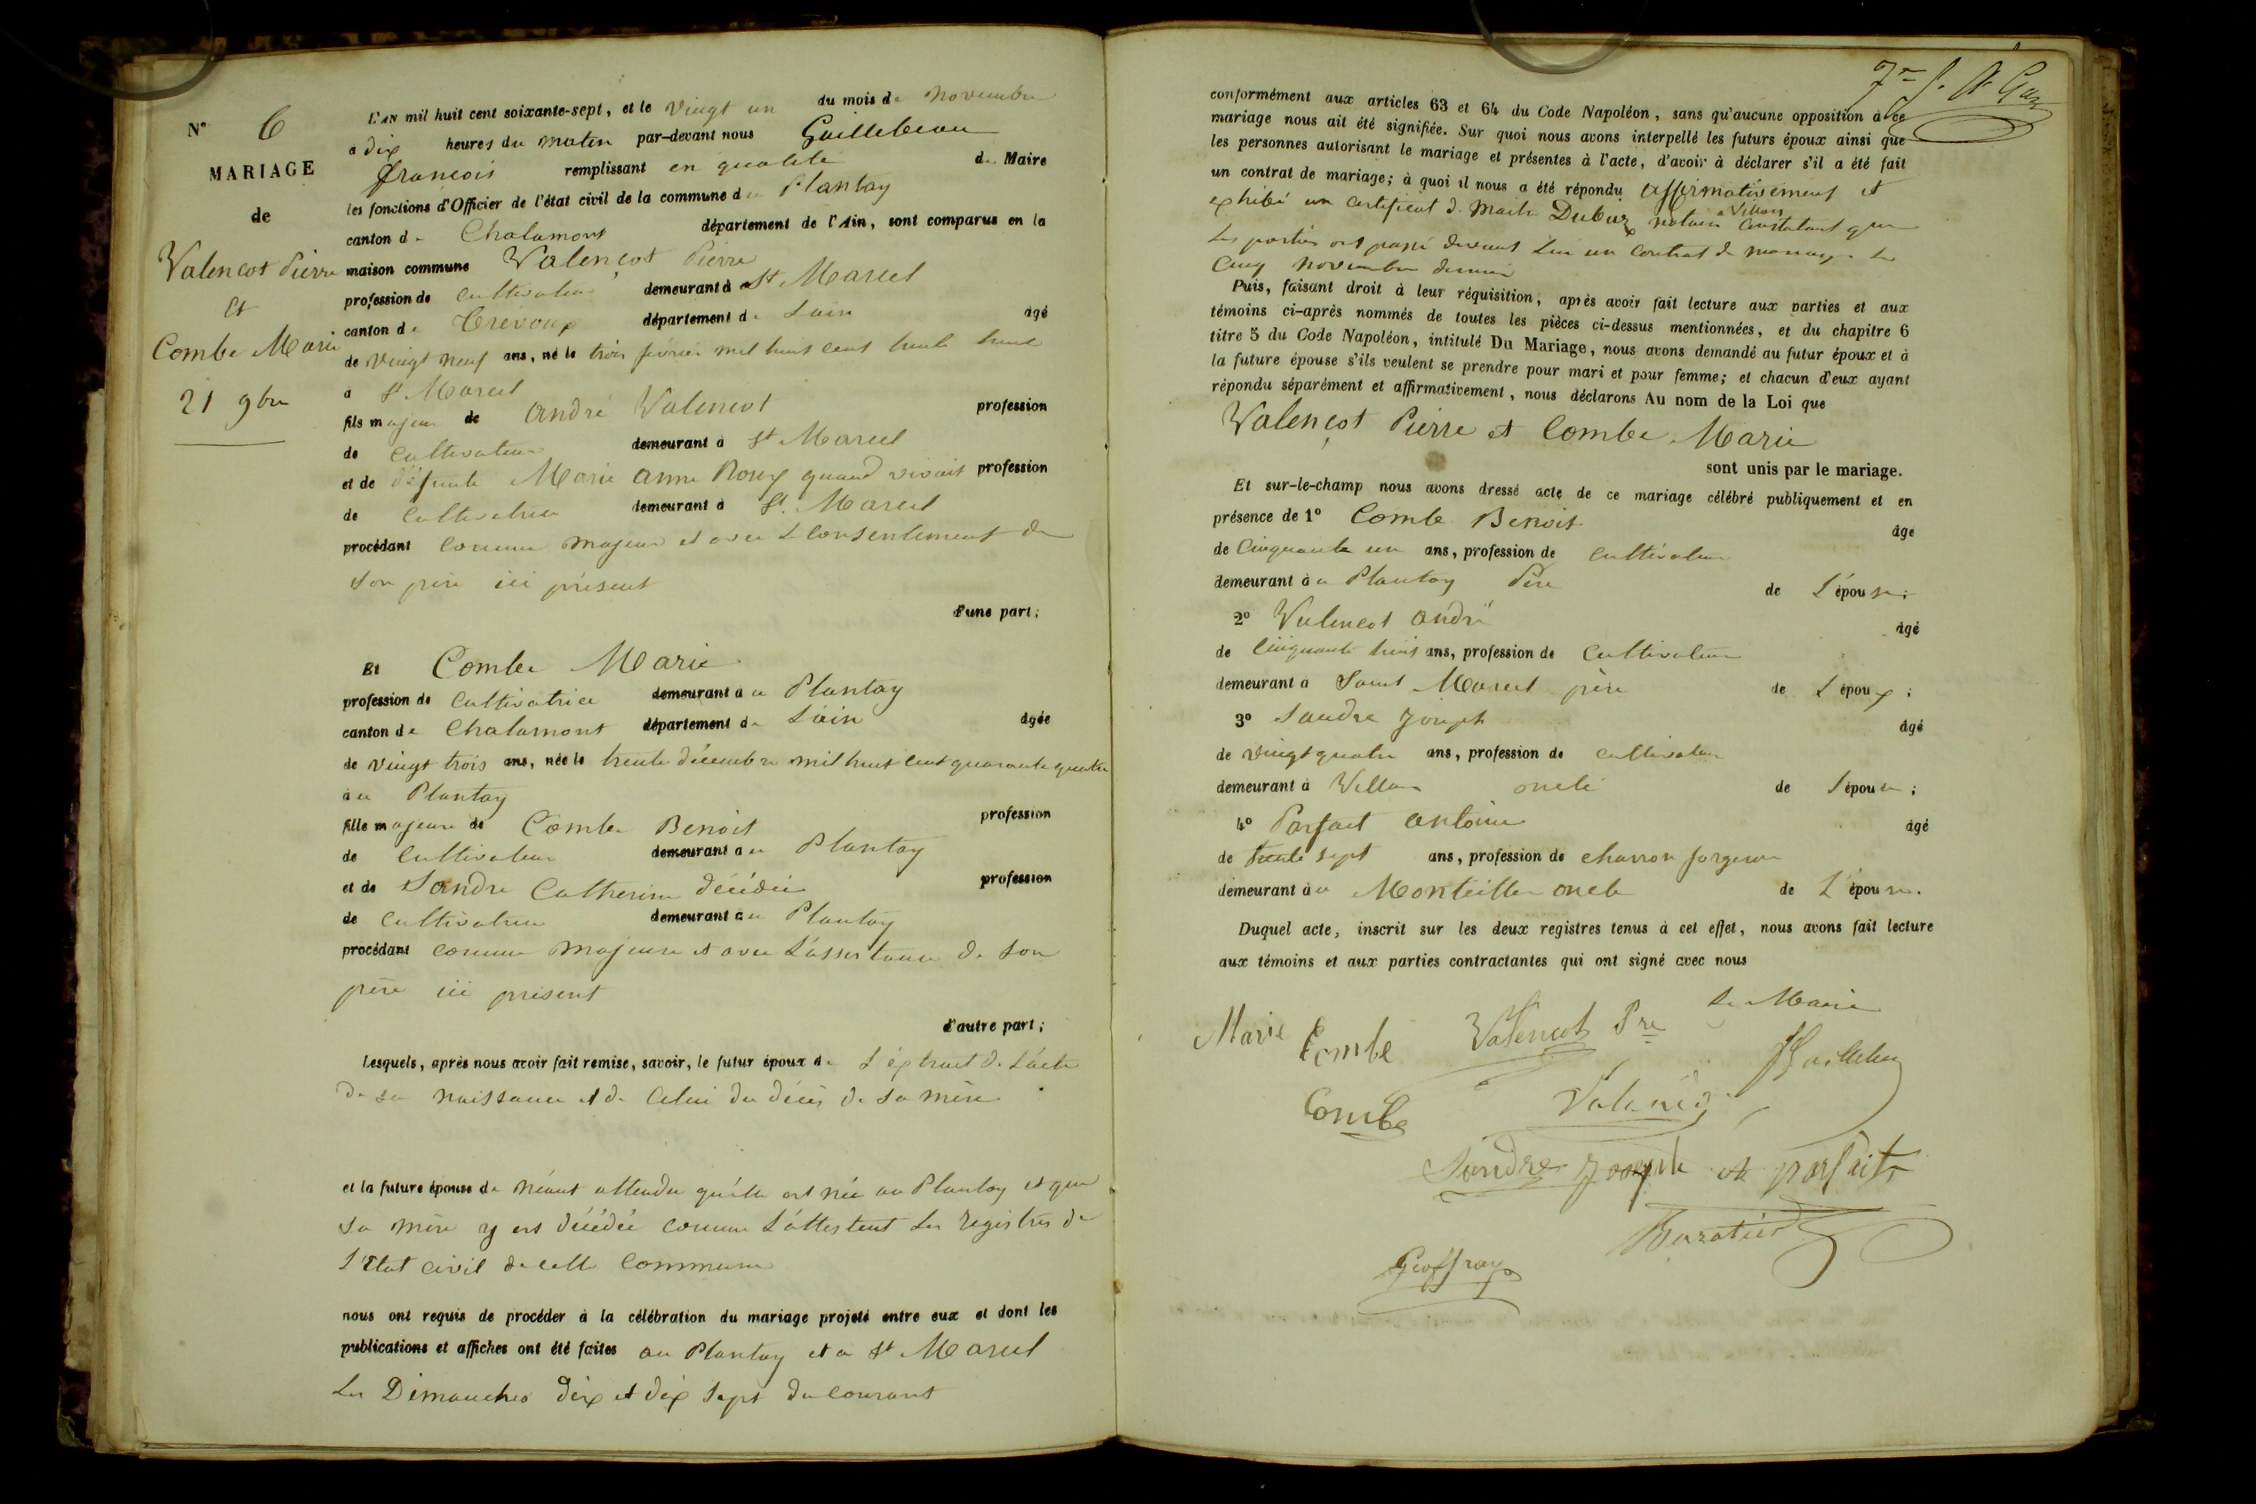 N° 6
MARIAGE
de
Valencot Pierre
et
Combe Marie
21 9bre
L'AN mil huit cent soixante-sept, et le vingt un du mois de novembre
a dix heures du matin par-devant nous Guillebeau
François remplissant en qualité de Maire
les fonctions d'Officier de l'état civil de la commune du Plantay
canton de Chalamont département de l'Ain, sont comparus en la
maison commune Valençot Pierre
profession de cultivateur demeurant à St Marcel
canton de Trevoux département de Lain âgé
de vingt neuf ans, né le trois février mil huit cent trente huit
à St Marcel
fils majeur de André Valencot profession
de cultivateur demeurant à St Marcel
et de défunte Marie Anne Roux quand vivait profession
de cultivatrice demeurant à St Marcel
procédant comme majeur et avec le consentement de
son père ici présent
d'une part;
Et Combe Marie
profession de cultivatrice demeurant à au Plantay
canton de Chalamont département de Lain âgée
de vingt trois ans, née le trente décembre mil huit cent quarante quatre
à au Plantay
fille majeure de Combe Benoit profession
de cultivateur demeurant à au Plantay
et de Sandre Catherine décédée profession
de cultivatrice demeurant au Plantay
procédant comme majeure et avec l'assistance de son
père ici présent
d'autre part;
Lesquels, après nous avoir fait remise, savoir, le futur époux de L'extrait de L'acte
de sa naissance et de celui du décès de sa mère
et la future épouse de néant attendu qu'elle est née au Plantay et que
sa mère y est décédée comme l'attestent les registres de
l'Etat civil de cette commune
nous ont requis de procéder à la célébration du mariage projeté entre eux et dont les
publications et affiches ont été faites au Plantay et a St Marcel
les Dimanches dix et dix sept du courant
conformément aux articles 63 et 64 du Code Napoléon, sans qu'aucune opposition à ce
mariage nous ait été signifiée. Sur quoi nous avons interpellé les futurs époux ainsi que
les personnes autorisant le mariage et présentes à l'acte, d'avoir à déclarer s'il a été fait
un contrat de mariage; à quoi il nous a été répondu affirmativement et
exhibé un certificat de Maitre Dubuz notaire a Villars constatant que
les parties ont passé devant lui un contrat de mariage le
cinq novembre dernier
Puis, faisant droit à leur réquisition, après avoir fait lecture aux parties et aux
témoins ci-après nommés de toutes les pièces ci-dessus mentionnées, et du chapitre 6
titre 5 du Code Napoléon, intitulé Du Mariage, nous avons demandé au futur époux et à
la future épouse s'ils veulent se prendre pour mari et pour femme; et chacun d'eux ayant
répondu séparément et affirmativement, nous déclarons Au nom de la Loi que
Valençot Pierre et Combe Marie
sont unis par le mariage.
Et sur-le-champ nous avons dressé acte de ce mariage célébré publiquement et en
présence de 1° Combe Benoit âgé
de cinquante un ans, profession de cultivateur
demeurant à au Plantay Père de L'épouse;
2° Valencot André âgé
de cinquante trois ans, profession de cultivateur
demeurant à Saint Marcel père de L'époux;
3° Sandre Joseph âgé
de vingt quatre ans, profession de cultivateur
demeurant à Villars oncle de L'épouse;
4° Parfait Antoine âgé
de trente sept ans, profession de charron forgeron
demeurant à au Montellier oncle de L'épouse.
Duquel acte, inscrit sur les deux registres tenus à cet effet, nous avons fait lecture
aux témoins et aux parties contractantes qui ont signé avec nous
Marie Combe Valencot Pre Le Maire
Combe Valencot
Sandre Joseph et parfait
Geoffray